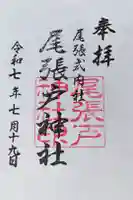 奉拝
尾張式内社
尾張戸神社
令和七年七月十九日
尾張戸
神社